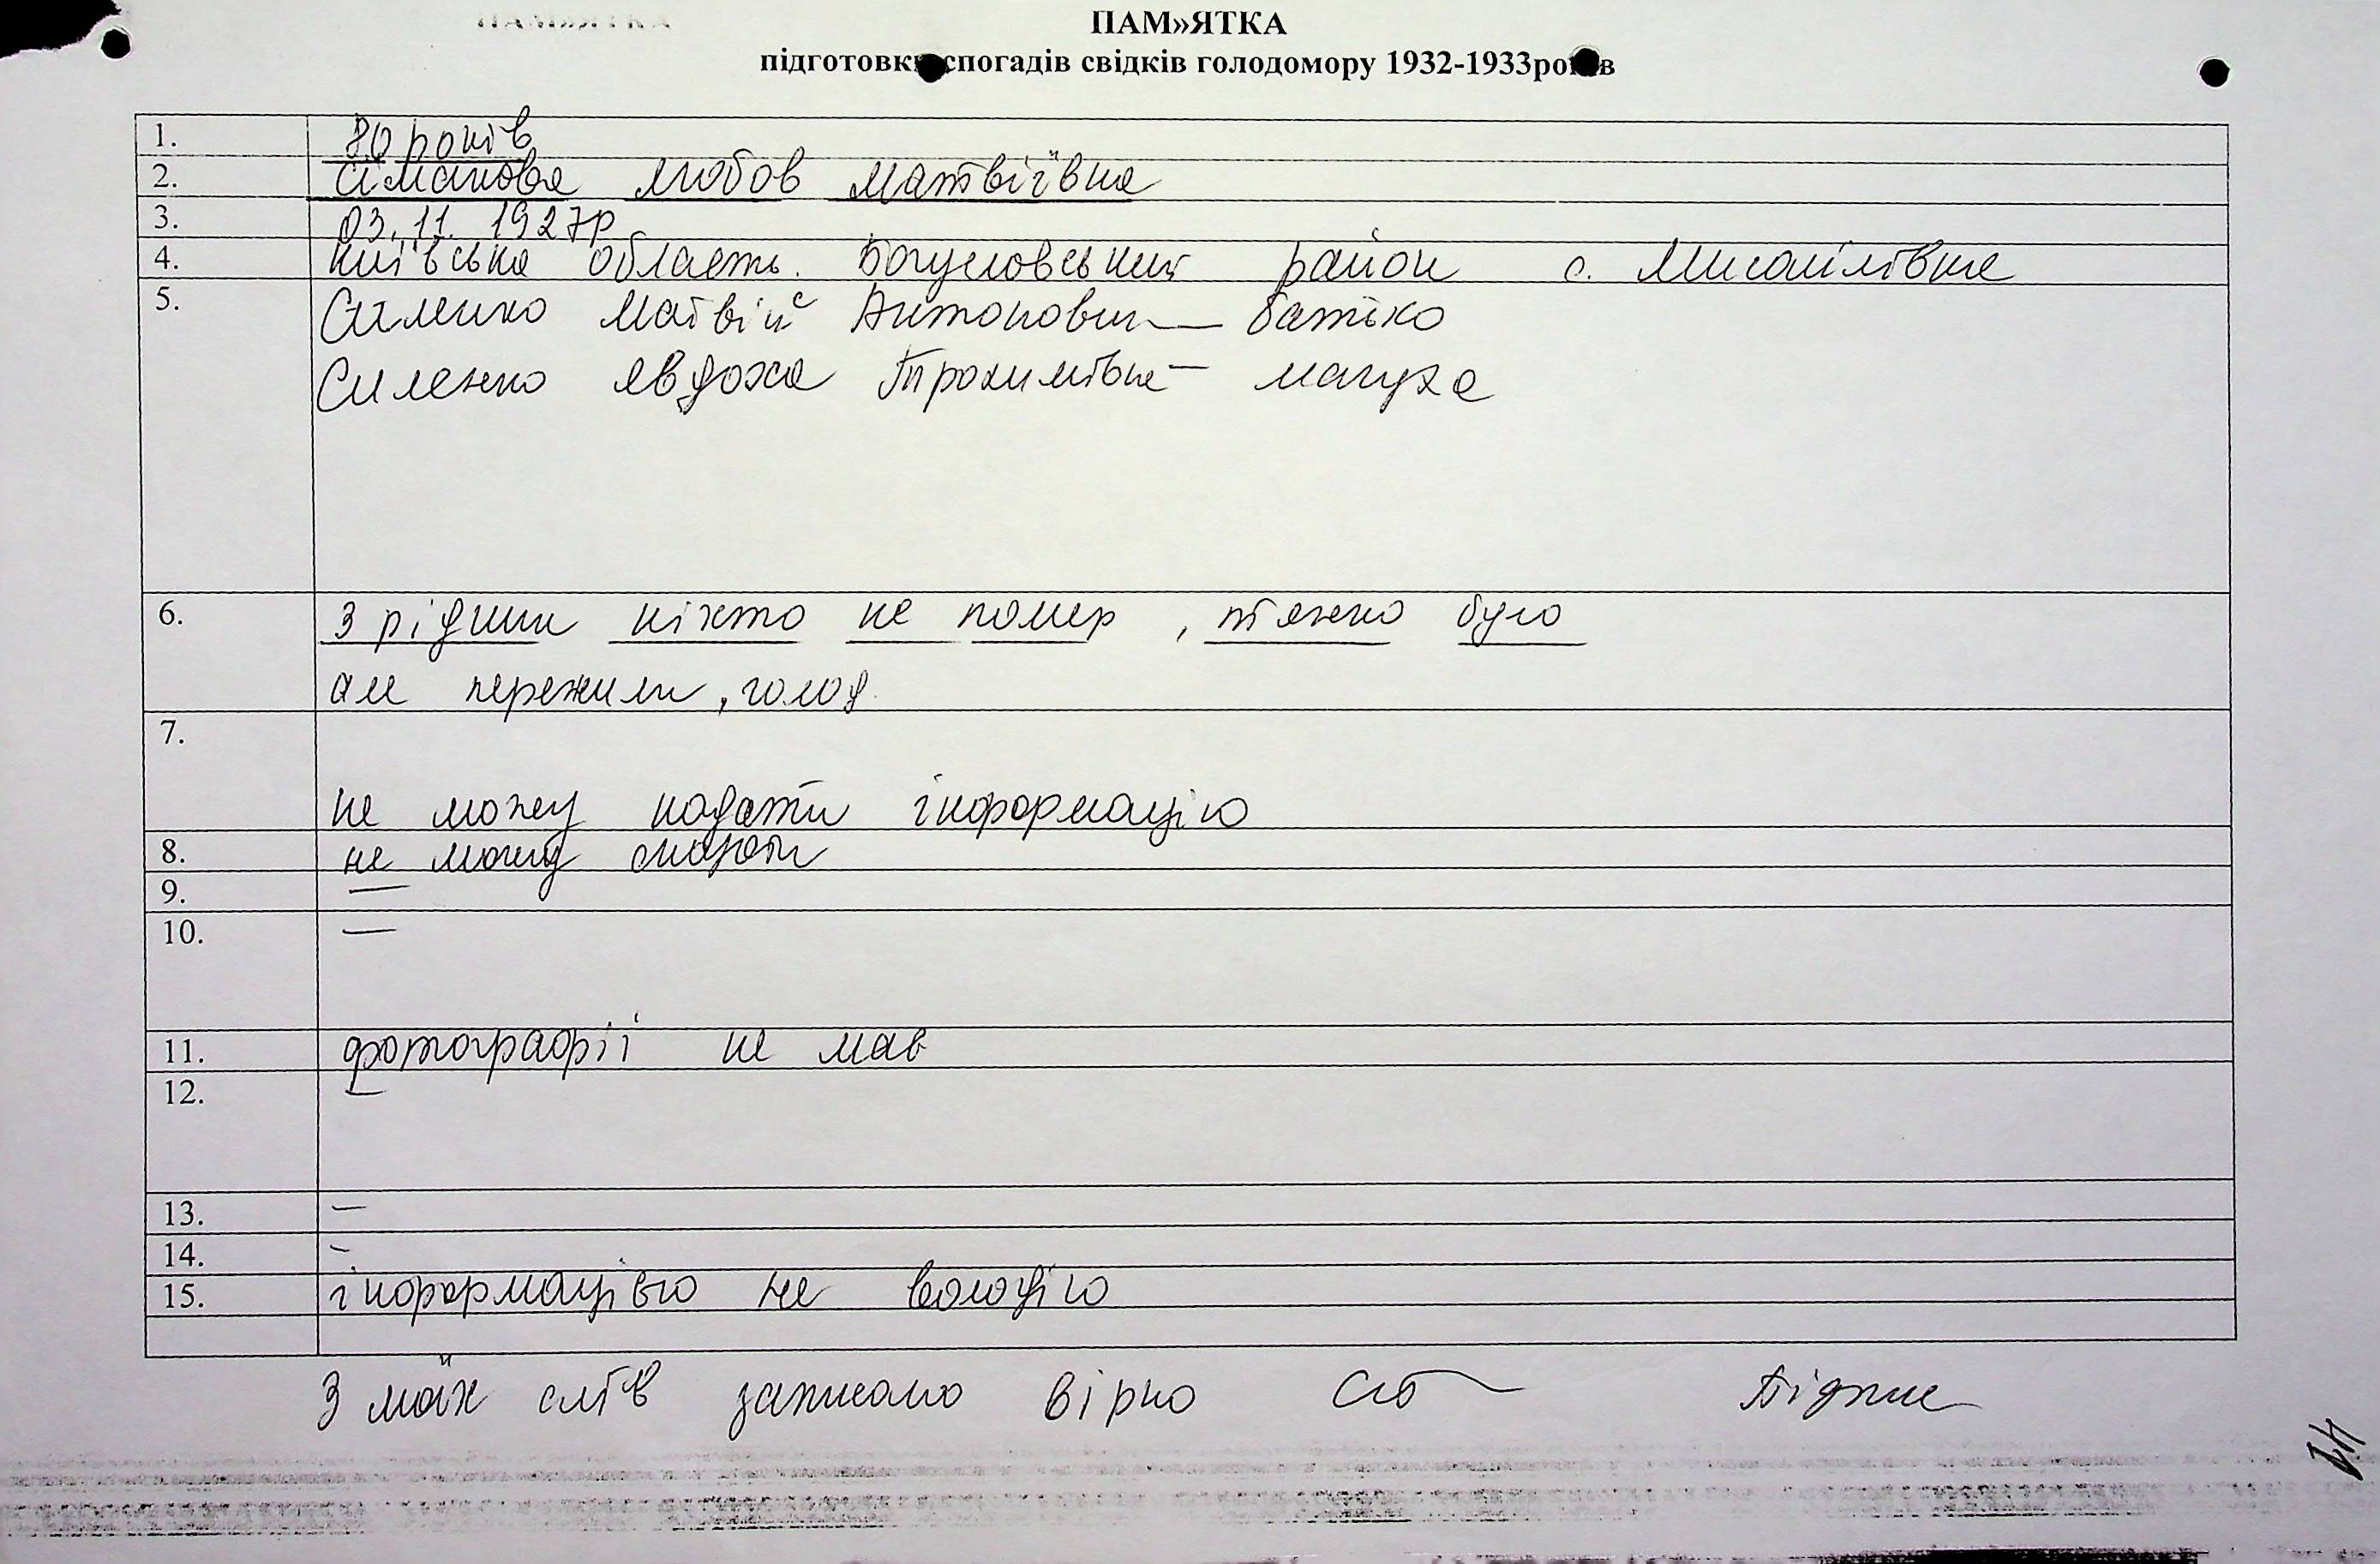 ПАМ»ЯТКА
підготовки спогадів свідків голодомору 1932-1933років
1. 80 років
2. Сіманова Любов Матвіївна
3. 03.11.1927р
4. Київська область. Богуславський район с. Мисайлівка
5. Силенко Матвій Антонович — батько
Силенко Явдоха Трохимівна — мачуха
6. З рідних ніхто не помер, тяжко було
але пережили, голод.
7.
не можу надати інформацію
8. не можу сказати
9. —
10. —
11. фотографії не маю
12. —
13. —
14. —
15. інформацією не володію
З моїх слів записано вірно Підпис